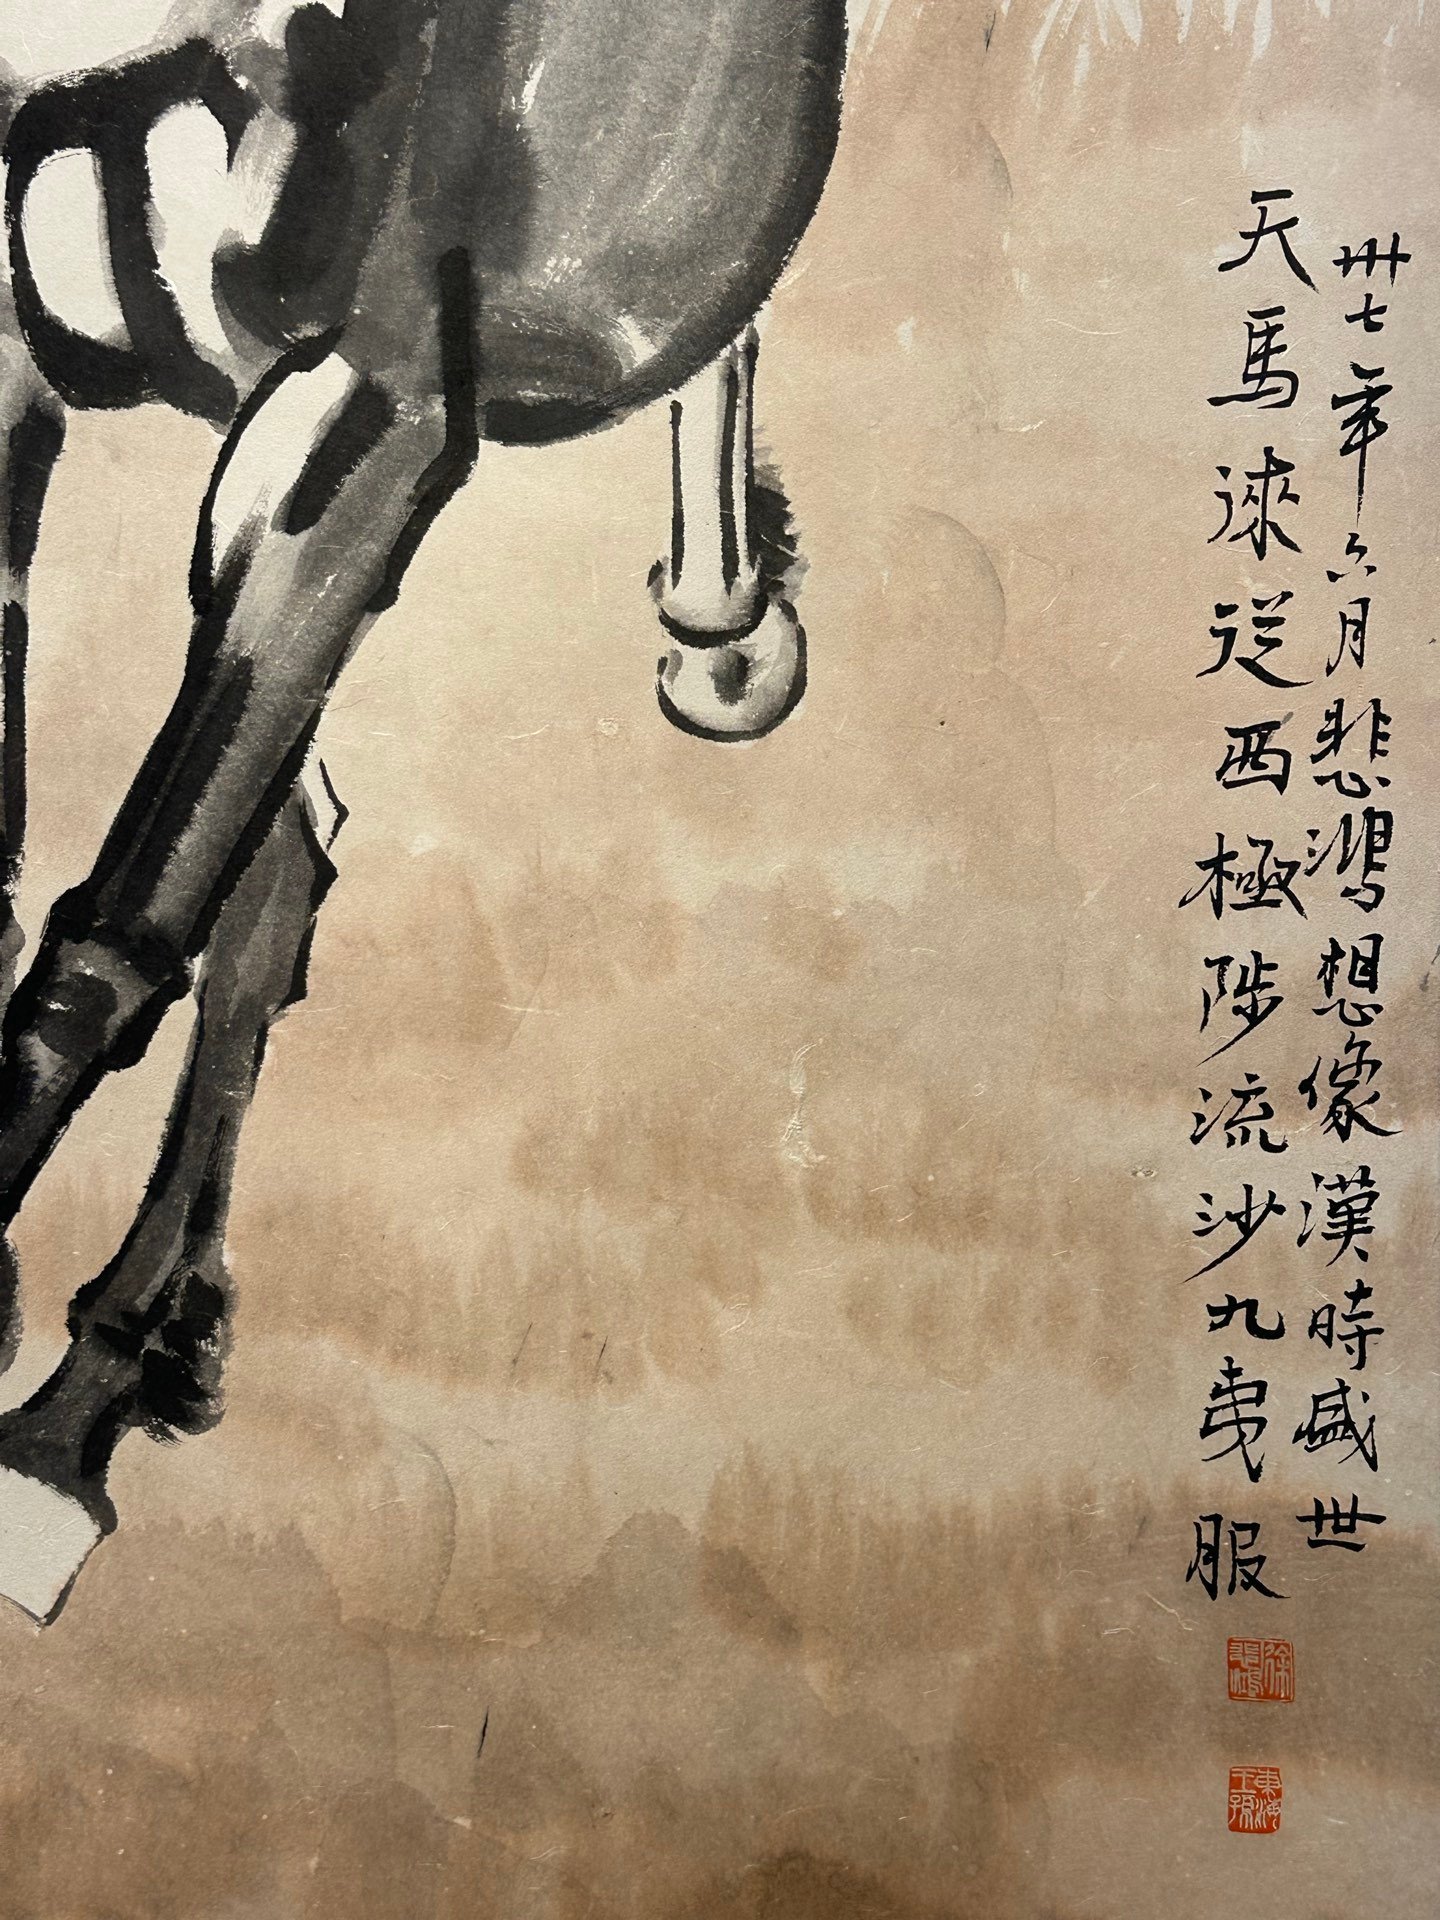 卅七年六月悲鴻想像漢時盛世
天馬徠從西極陟流沙九夷服
徐悲鴻
東海王孫